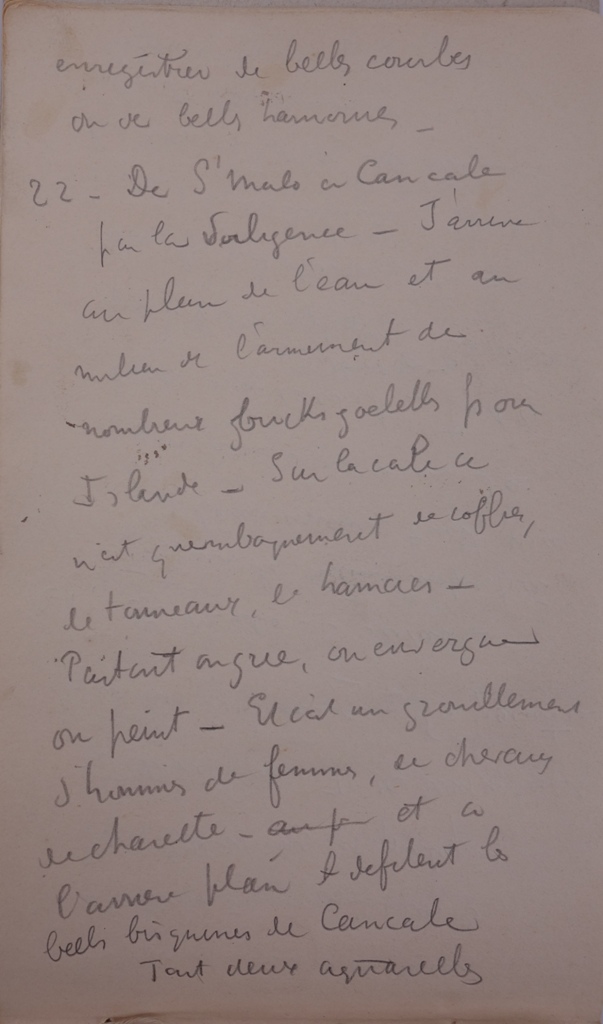 enregistrer de belles courbes
ou de belles harmonies _
22 - De St Malo a Cancale
par la diligence - J'arrive
au plein de l'eau et au
milieu de l'armement de
nombreux goelettes pour
Islande - Sur la cale ce
n'est qu'embarquement de coffres,
de tonneaux, de hamacs -
Partout on gree, on envergue
on peint - Et c'est un grouillement
d'hommes de femmes, de chevaux
de charette - et a
l'arriere plan defilent les
belles bisquines de Cancale
Tout deux aquarelles